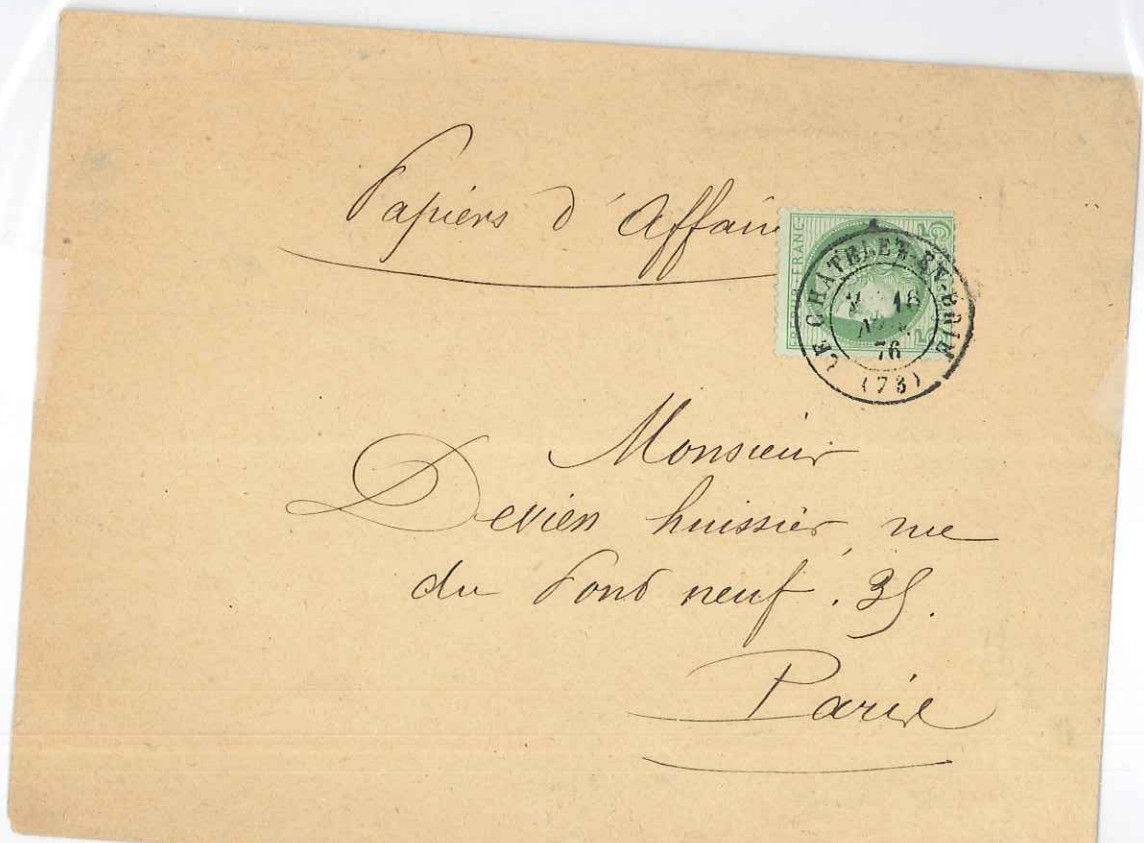 Papiers d'Affair
REPUB · FRANC
LE CHATELET-EN-BRIE
16
76
(73)
Monsieur
Devien huissier, rue
du Pont neuf. 35.
Paris